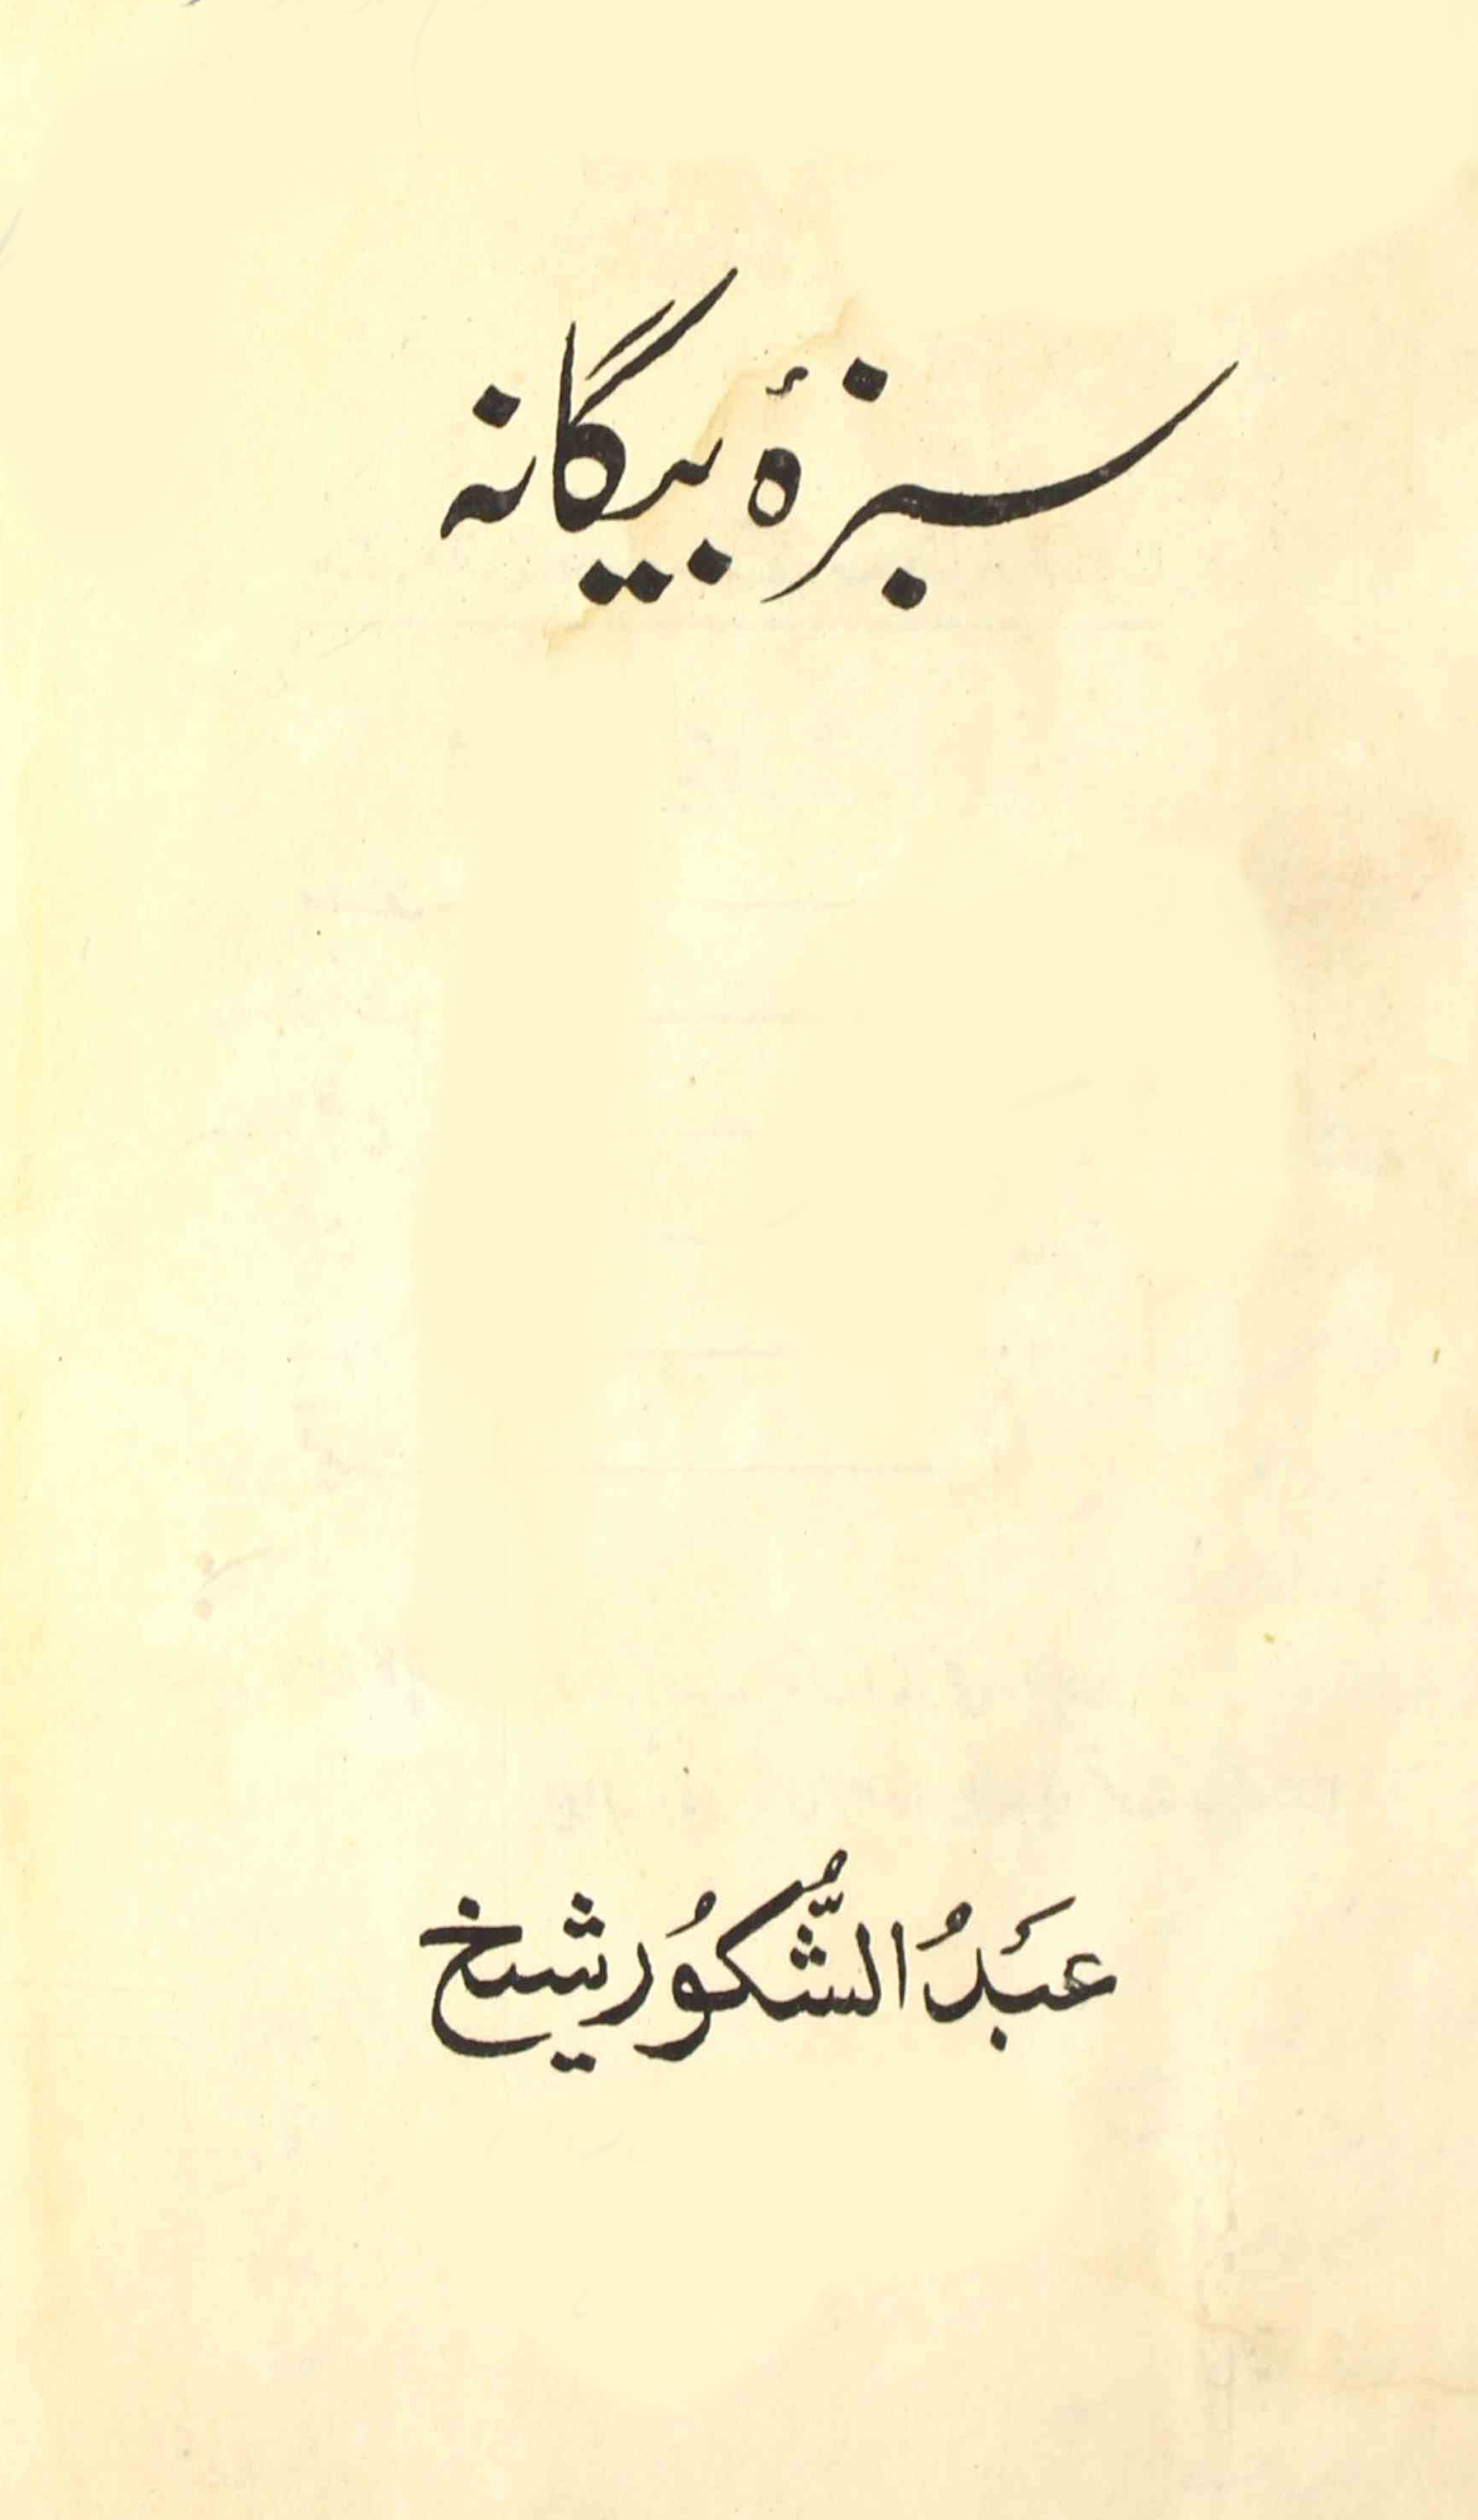 سبزۂ بیگانہ
عَبدُ الشُّکُور شیخ